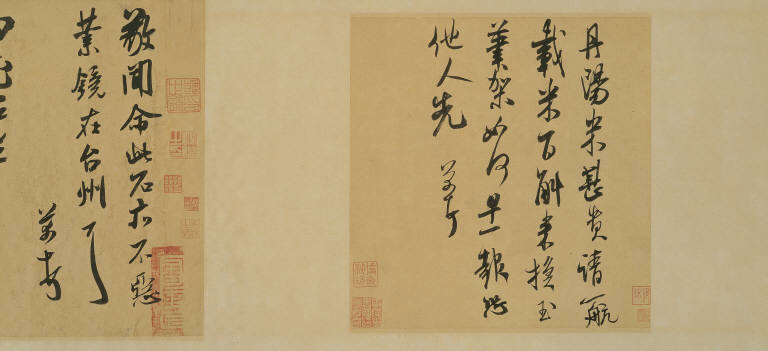 丹陽米甚貴請一航
載米百斛來換玉
筆架如何早一報恐
他人先 芾頓首
敬聞命此石亦不惡
業鏡在台州
芾頓首